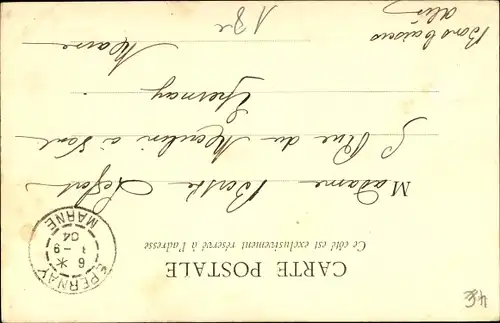 CARTE POSTALE
Ce côté est exclusivement réservé à l'adresse
Madame Berthe
5 Rue du Moulin à Vent
Epernay
Marne
Bons baisers
EPERNAY
6 *
1 - 9
04
MARNE